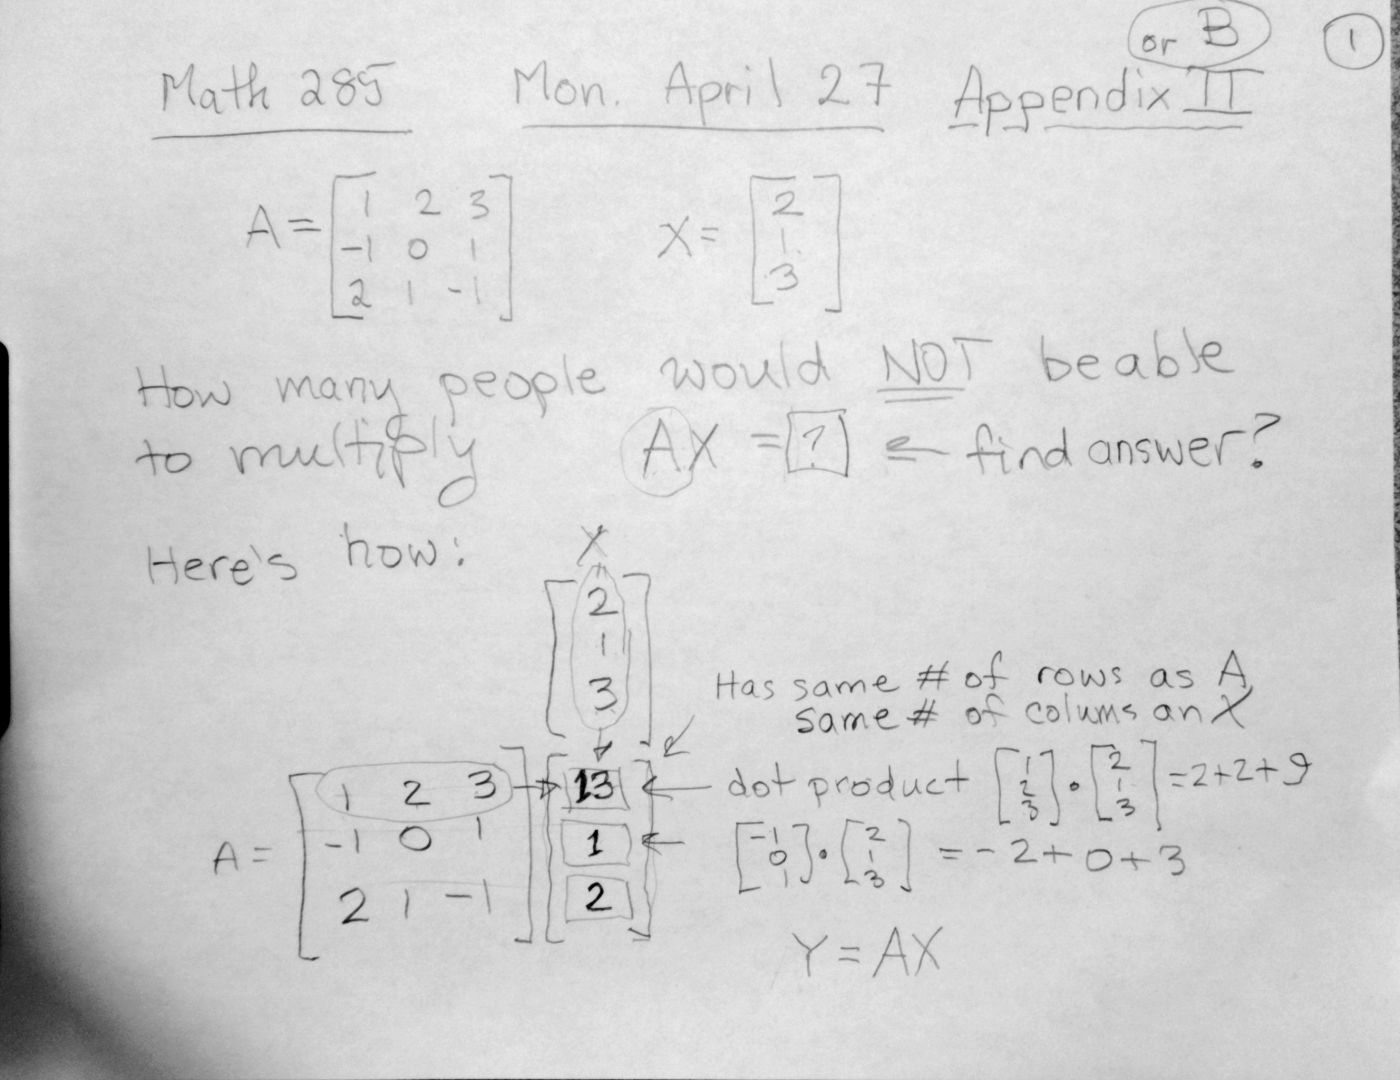 or B
1
Math 285 Mon. April 27 Appendix II
A = [1 2 3
-1 0 1
2 1 -1]
X = [2
1
3]
How many people would NOT beable
to multiply AX = ? ← find answer?
Here's how:
X
[2
1
3]
Has same # of rows as A
same # of colums an X
A = [1 2 3
-1 0 1
2 1 -1]
→ [13
1
2]
← dot product [1 2 3] · [2 1 3] = 2+2+9
← [-1 0 1] · [2 1 3] = -2+0+3
Y = AX